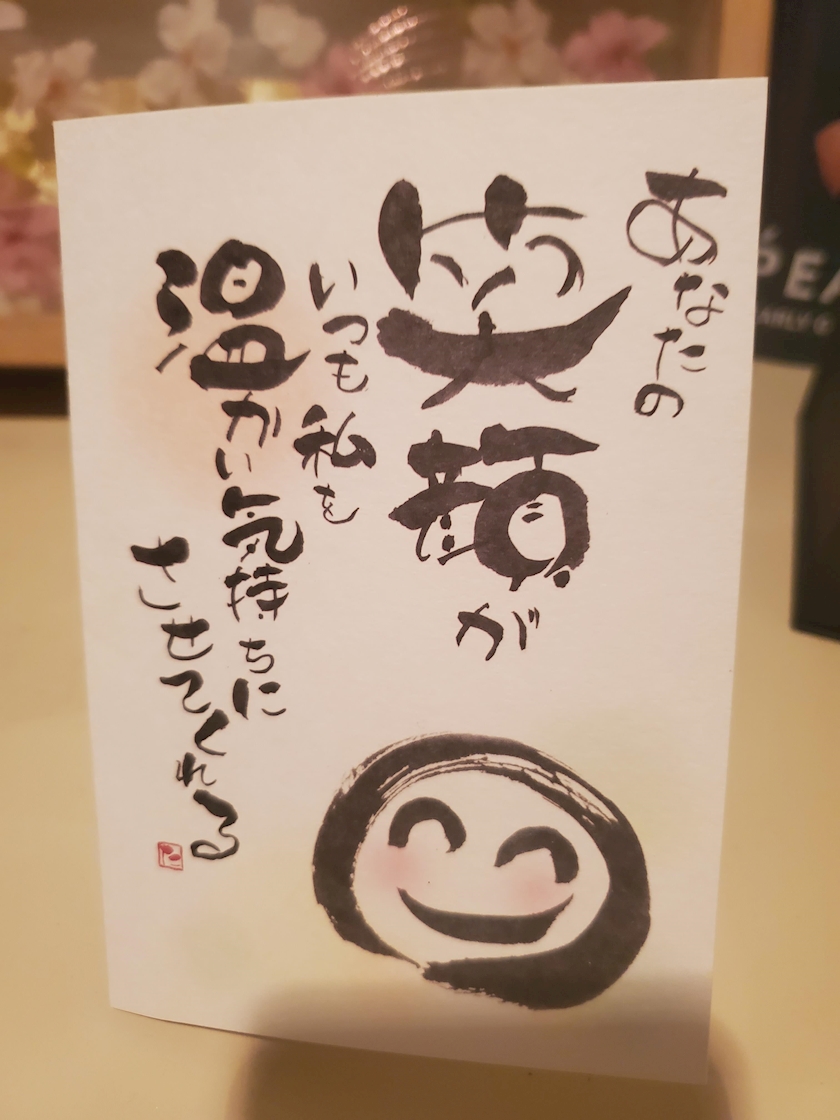 あなたの
笑顔が
いつも私を
温かい気持ちに
させてくれる